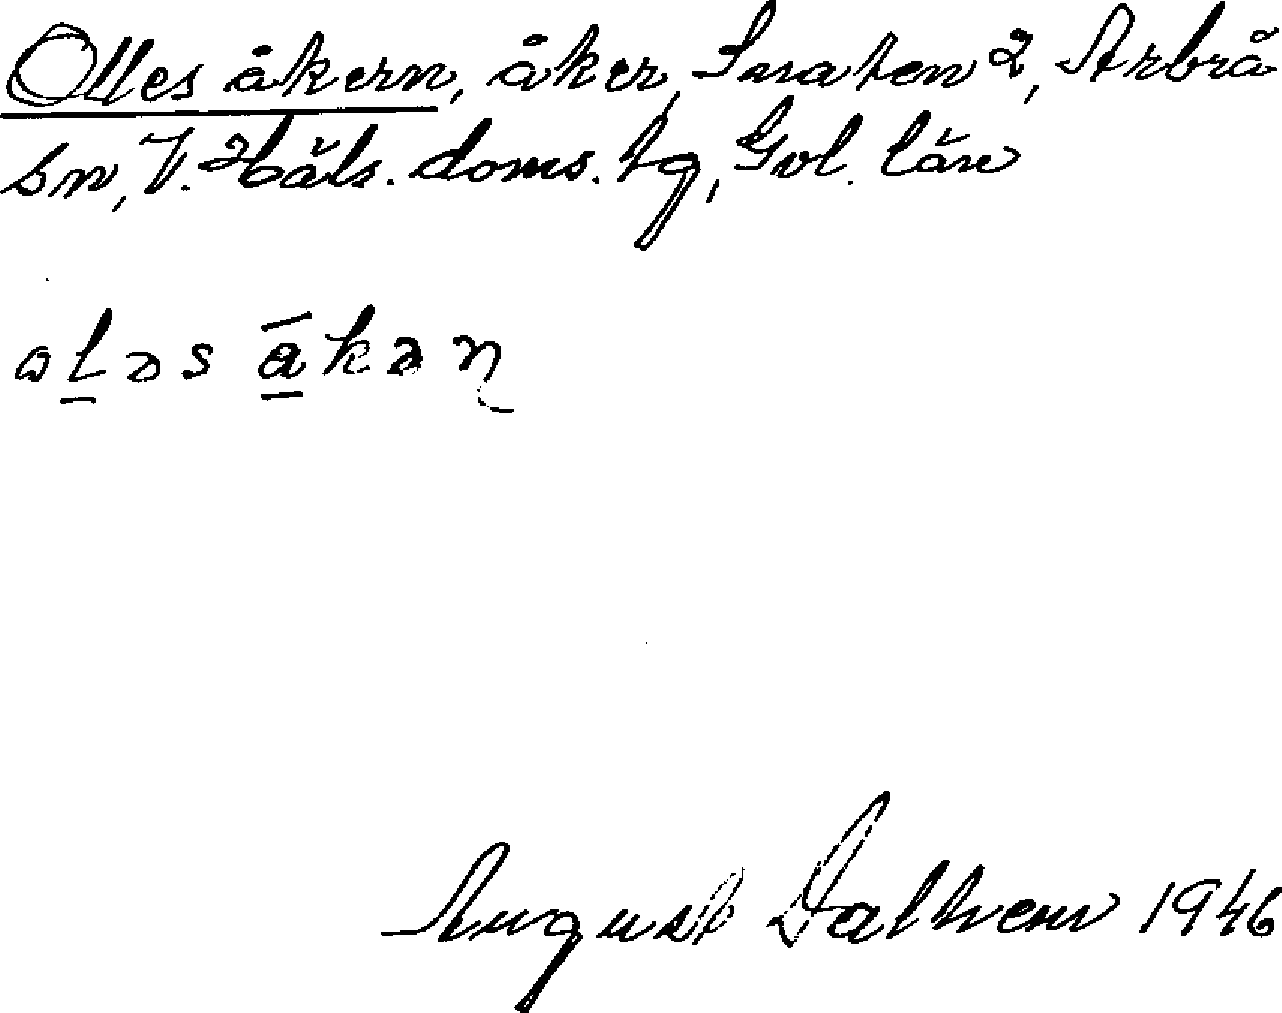 Olles åkern, åker, Snaten 2, Arbrå
sn, V. Häls. doms. tg, Gvl. län
olǝs ākǝn
August Dalhem 1946